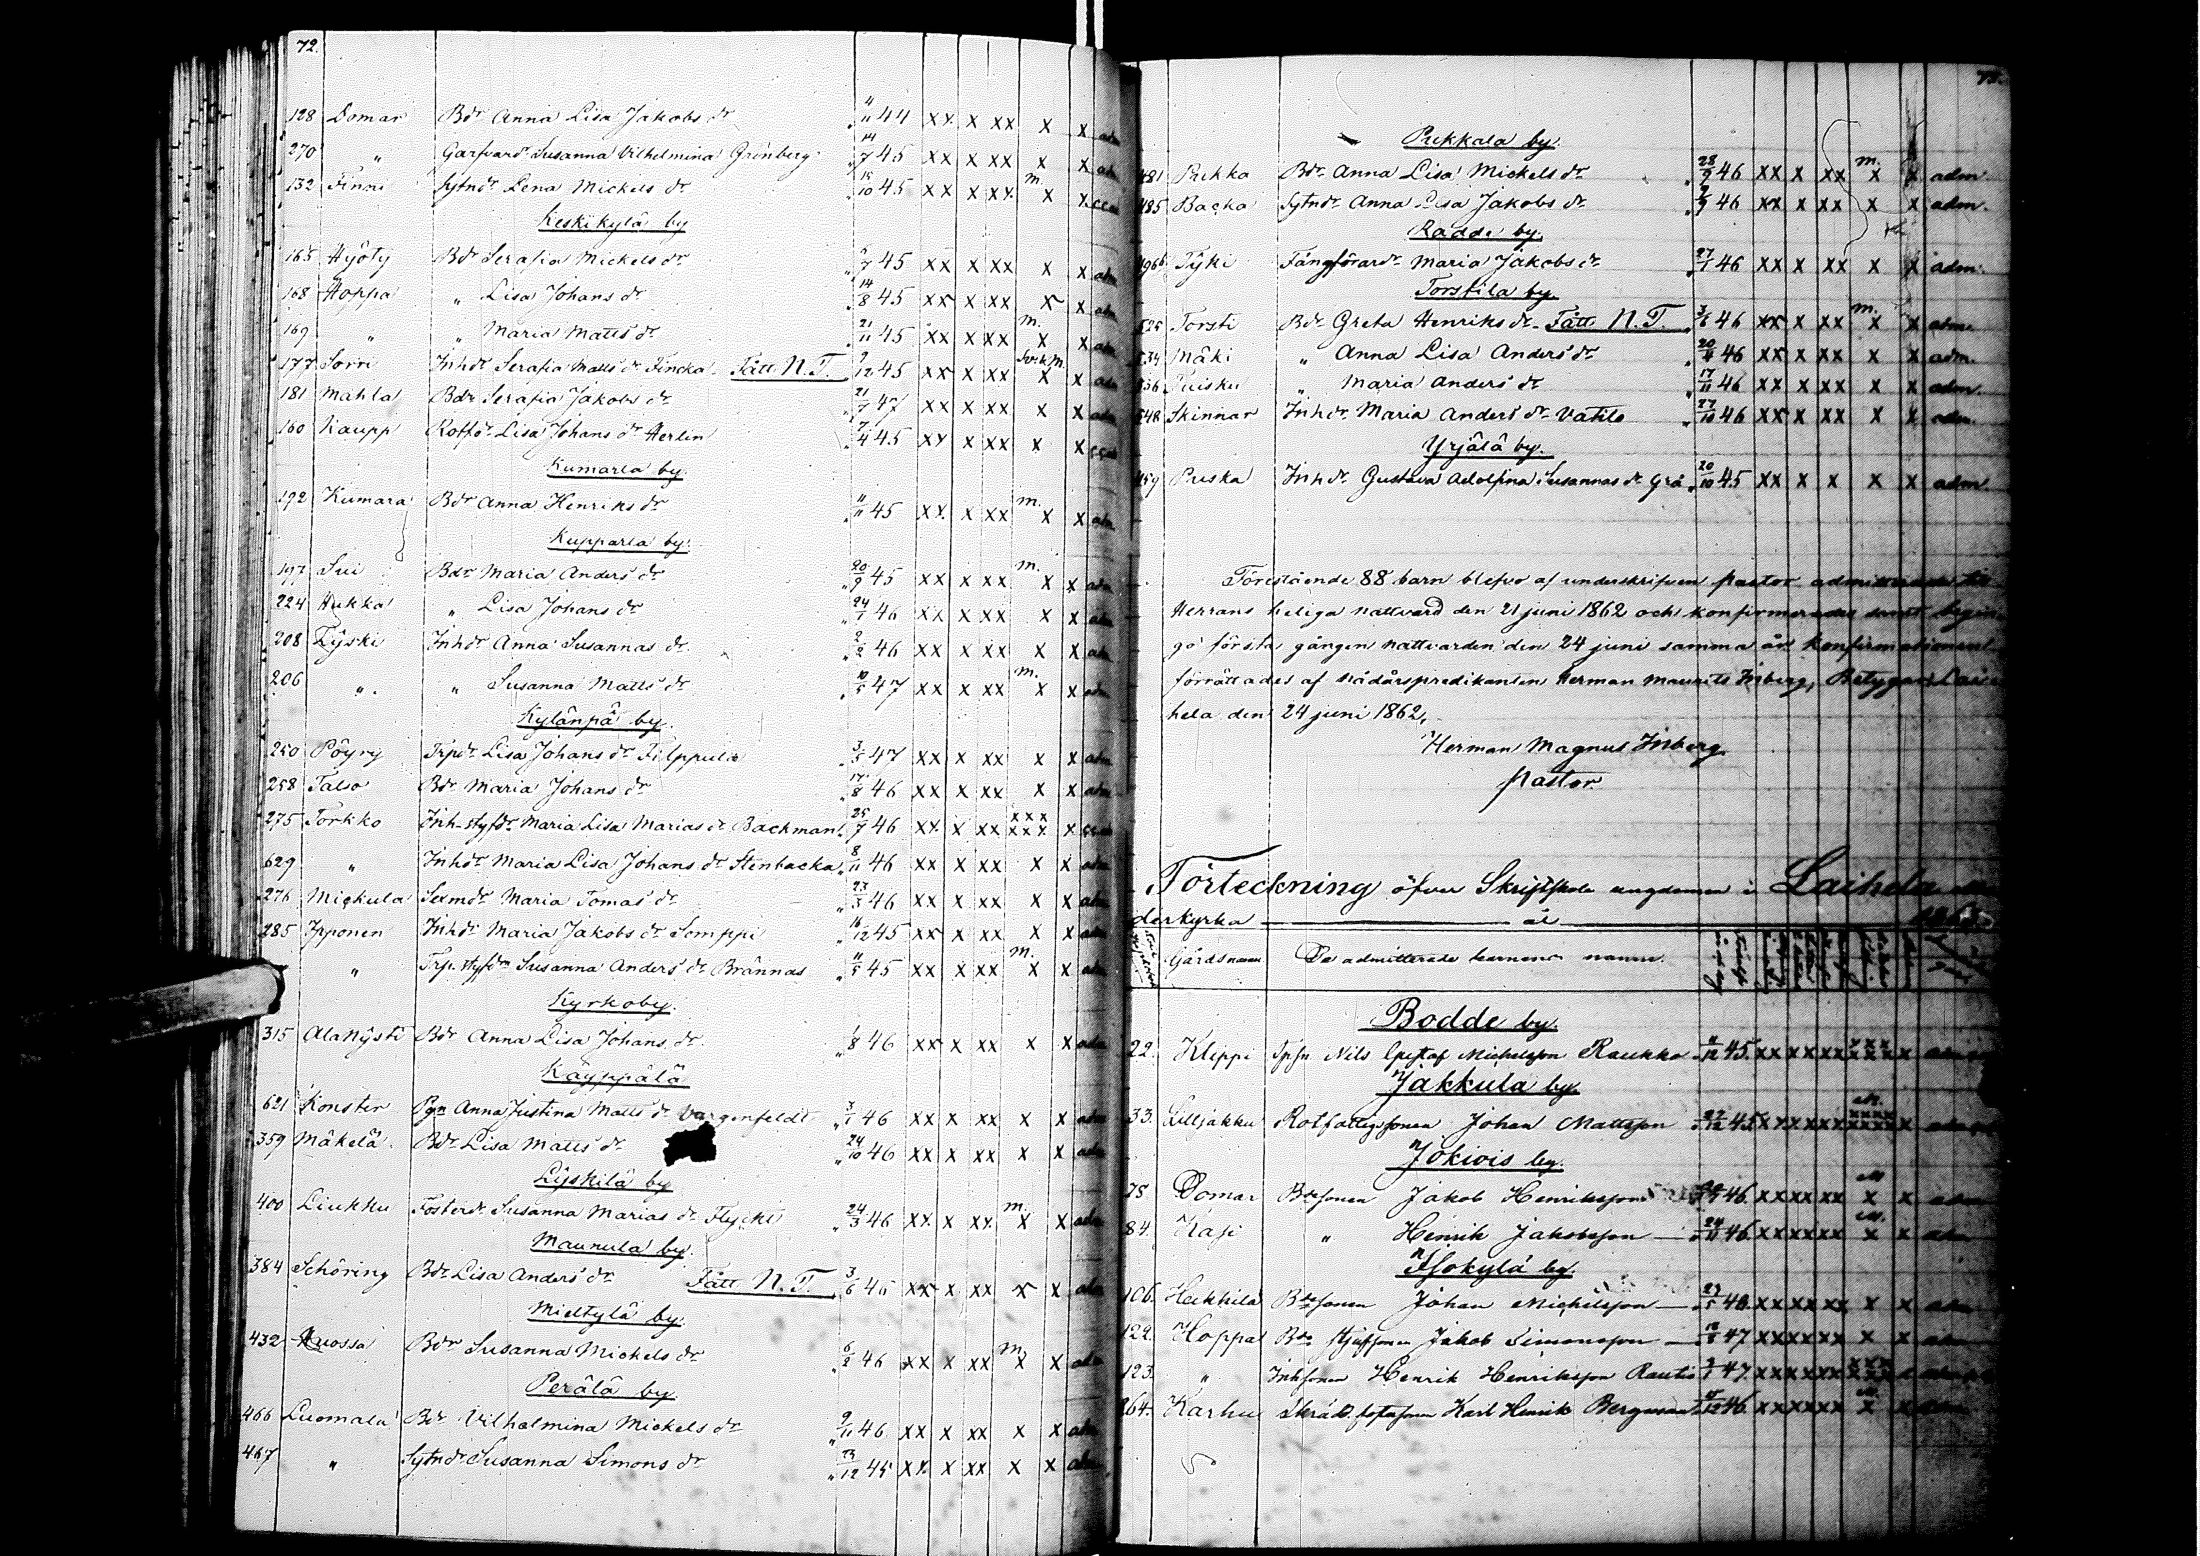 72.
128 Domar Bdr Anna Lisa Jakobs dr 4/11 44 xx x xx x x adm
270 " Garfvardr Susanna Vilhelmina Grönberg 14/7 45 xx x xx x x adm
132 Finni Sytndr Lena Mickels dr 15/10 45 xx x xx m. x x
Keskikylä by
165 Hyöty Bdr Serafia Mickels dr /7 45 xx x xx x x adm
168 Hoppa " Lisa Johans dr 14/8 45 xx x xx x x adm
169 " " Maria Matts dr 21/11 45 xx x xx m. x x adm
177 Sorri Inhdr Serafia Matts dr Fincka Fått N. T. 9/12 45 xx x xx x x adm
181 Mahla Bdr Serafia Jakobs dr 21/7 47 xx x xx x x adm
160 Kaupp Rotfdr Lisa Johans dr Herlin 7/4 45 xx x xx x x
Kumarla by
192 Kumara Bdr Anna Henriks dr 11/11 45 xx x xx m. x x adm
Kupparla by.
197 Sui Bdr Maria Anders dr 20/9 45 xx x xx m. x x adm
224 Hukka " Lisa Johans dr 24/7 46 xx x xx x x adm
208 Lyski Inhdr Anna Susannas dr 2/2 46 xx x xx x x adm
206 " " Susanna Matts dr 10/5 47 xx x xx m. x x adm
Kylänpä by.
250 Pöyry Trpdr Lisa Johans dr Filppula 3/5 47 xx x xx x x adm
258 Talso Bdr Maria Johans dr 17/8 46 xx x xx x x adm
275 Torkko Inh-styfdr Maria Lisa Marias dr Backman 25/7 46 xx x xx xxx xxx x
629 " Inhdr Maria Lisa Johans dr Stenbacka 8/11 46 xx x xx x x adm
276 Mickula Sexmdr Maria Tomas dr 23/3 46 xx x xx x x adm
285 Ipponen Inhdr Maria Jakobs dr Somppi 16/12 45 xx x xx x x adm
" Trp. styfdr Susanna Anders dr Brännas 11/5 45 xx x xx m. x x adm
Kyrkoby.
315 AlaNysti Bdr Anna Lisa Johans dr 1/8 46 xx x xx x x adm
Käyppälä
621 Konster Anna Justina Matts dr 3/1 46 xx x xx x x adm
359 Mäkelä Bdr Lisa Matts dr 24/10 46 xx x xx x x adm
Lyskilä by
400 Liukku Fosterdr Susanna Marias dr Flyckt 24/3 46 xx x xx m. x x adm
Maunula by.
384 Schöring Bdr Lisa Anders dr Fått N. T. 3/6 45 xx x xx x x adm
Mieltylä by.
432 Kuossa Bdr Susanna Mickels dr 6/2 46 xx x xx m. x x adm
Perälä by.
466 Luomala Bdr Vilhelmina Mickels dr 9/11 46 xx x xx x x adm
467 " Sytndr Susanna Simons dr 13/12 45 xx x xx x x adm
73.
Pukkala by.
481 Pukka Bdr Anna Lisa Mickels dr 28/9 46 xx x xx m. x x adm.
485 Backa Sytndr Anna Lisa Jakobs dr 9/9 46 xx x xx x x adm.
Radde by.
Tyki Fångförardr Maria Jakobs dr 27/1 46 xx x xx x x adm.
Torstila by.
525 Torsti Bdr Greta Henriks dr Fått N. T. 3/6 46 xx x xx m. x x adm.
534 Mäki " Anna Lisa Anders dr 20/4 46 xx x xx x x adm.
536 " Maria Anders dr 17/11 46 xx x xx x x adm.
Skinnar Inhdr Maria Anders dr Vatilo 27/10 46 xx x xx x x adm.
Yrjälä by.
459 Puska Inhdr Gustava Adolfina Susannas dr Grå 20/10 45 xx x x x x adm.
Förestående 88 barn blefvo af underskrifven pastor admitterade till
Herrans heliga nattvard den 21 juni 1862 och konfirmerades samt begin-
go första gången nattvarden den 24 juni samma år. Konfirmationen
förrättades af nådårspredikanten Herman Maurits Inberg, Betygar, Lai-
hela den 24 juni 1862.
Herman Magnus Inberg
pastor
Förteckning öfver Skriftskole ungdomen i Laihela mo-
derkyrka år 1863.
Gårdsnamn De admitterade barnens namn.
Bodde by.
22. Klippi Nils Gustaf Michelsson Raukko 11/12 45 xx xx xx xxx xxx x
Jakkula by.
33. Lilljakku Rotfattigsonen Johan Mattsson 27/12 45 xx xx xx m. xxxx xxxx x
Jokivis by.
78 Domar Bdesonen Jakob Henriksson 46 xx xx xx m x x adm
84. Kasi " Henrik Jakobsson 24/11 46 xx xx xx m. x x adm
Isokylä by.
106. Heikkilä Bdesonen Johan Michelsson 27/5 46 xx xx xx x x adm
122. Hoppa Bde styfsonen Jakob Simonsson 12/8 47 xx xx xx x x adm
123. " Inhsonen Henrik Henriksson Rauti 47 xx xx xx xxx xxx x
164. Karhu Skräd. fostersonen Karl Henrik Bergman /12 46 xx xx xx m. x x adm